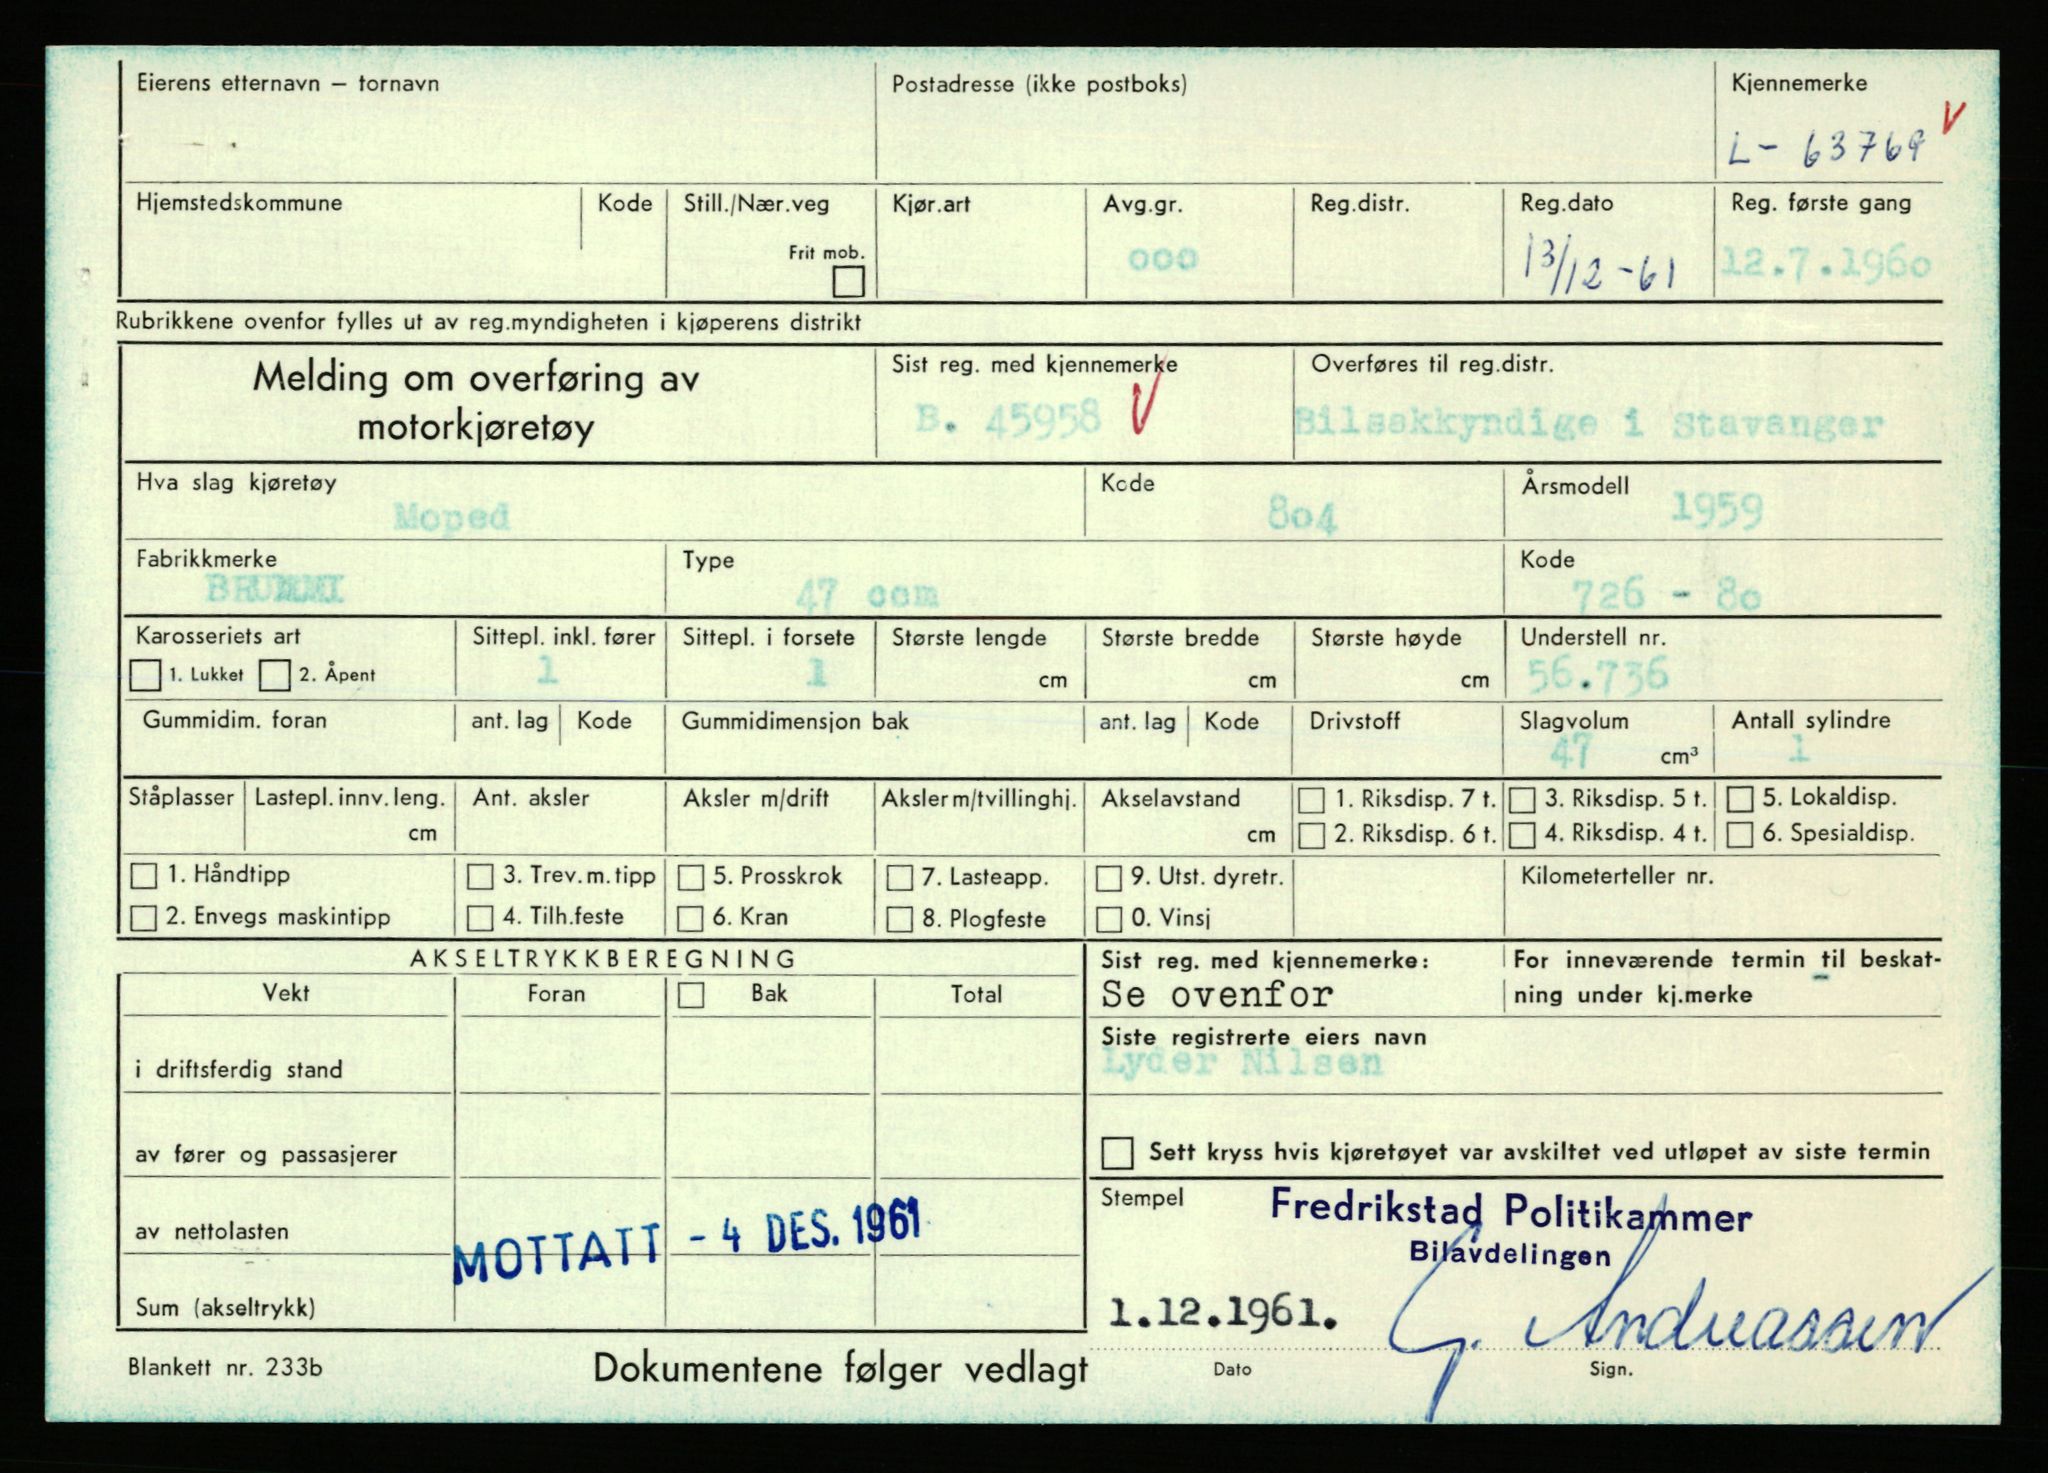 Eierens etternavn – tornavn
Postadresse (ikke postboks)
Kjennemerke
L- 63769
Hjemstedskommune
Kode
Still./Nær.veg
Frit mob.
Kjør.art
Avg.gr.
000
Reg.distr.
Reg.dato
13/12-61
Reg. første gang
12.7.1960
Rubrikkene ovenfor fylles ut av reg.myndigheten i kjøperens distrikt
Melding om overføring av
motorkjøretøy
Sist reg. med kjennemerke
B. 45958
Overføres til reg.distr.
Bilsakkyndige i Stavanger
Hva slag kjøretøy
Moped
Kode
804
Årsmodell
1959
Fabrikkmerke
BRUMMI
Type
47 ccm
Kode
726 - 80
Karosseriets art
1. Lukket 2. Åpent
Sittepl. inkl. fører
1
Sittepl. i forsete
1
Største lengde
cm
Største bredde
cm
Største høyde
cm
Understell nr.
56.736
Gummidim. foran
ant. lag
Kode
Gummidimensjon bak
ant. lag
Kode
Drivstoff
Slagvolum
47 cm³
Antall sylindre
1
Ståplasser
Lastepl. innv. leng.
cm
Ant. aksler
Aksler m/drift
Aksler m/tvillinghj.
Akselavstand
cm
1. Riksdisp. 7 t.
2. Riksdisp. 6 t.
3. Riksdisp. 5 t.
4. Riksdisp. 4 t.
5. Lokaldisp.
6. Spesialdisp.
1. Håndtipp
2. Envegs maskintipp
3. Trev.m.tipp
4. Tilh.feste
5. Prosskrok
6. Kran
7. Lasteapp.
8. Plogfeste
9. Utst. dyretr.
0. Vinsj
Kilometerteller nr.
AKSELTRYKKBEREGNING
Vekt
Foran
Bak
Total
i driftsferdig stand
av fører og passasjerer
av nettolasten
Sum (akseltrykk)
MOTTATT - 4 DES. 1961
Sist reg. med kjennemerke:
Se ovenfor
For inneværende termin til beskat-
ning under kj.merke
Siste registrerte eiers navn
Lyder Nilsen
Sett kryss hvis kjøretøyet var avskiltet ved utløpet av siste termin
Stempel
Fredrikstad Politikammer
Bilavdelingen
1.12.1961.
G. Andreassen
Dato
Sign.
Blankett nr. 233b
Dokumentene følger vedlagt